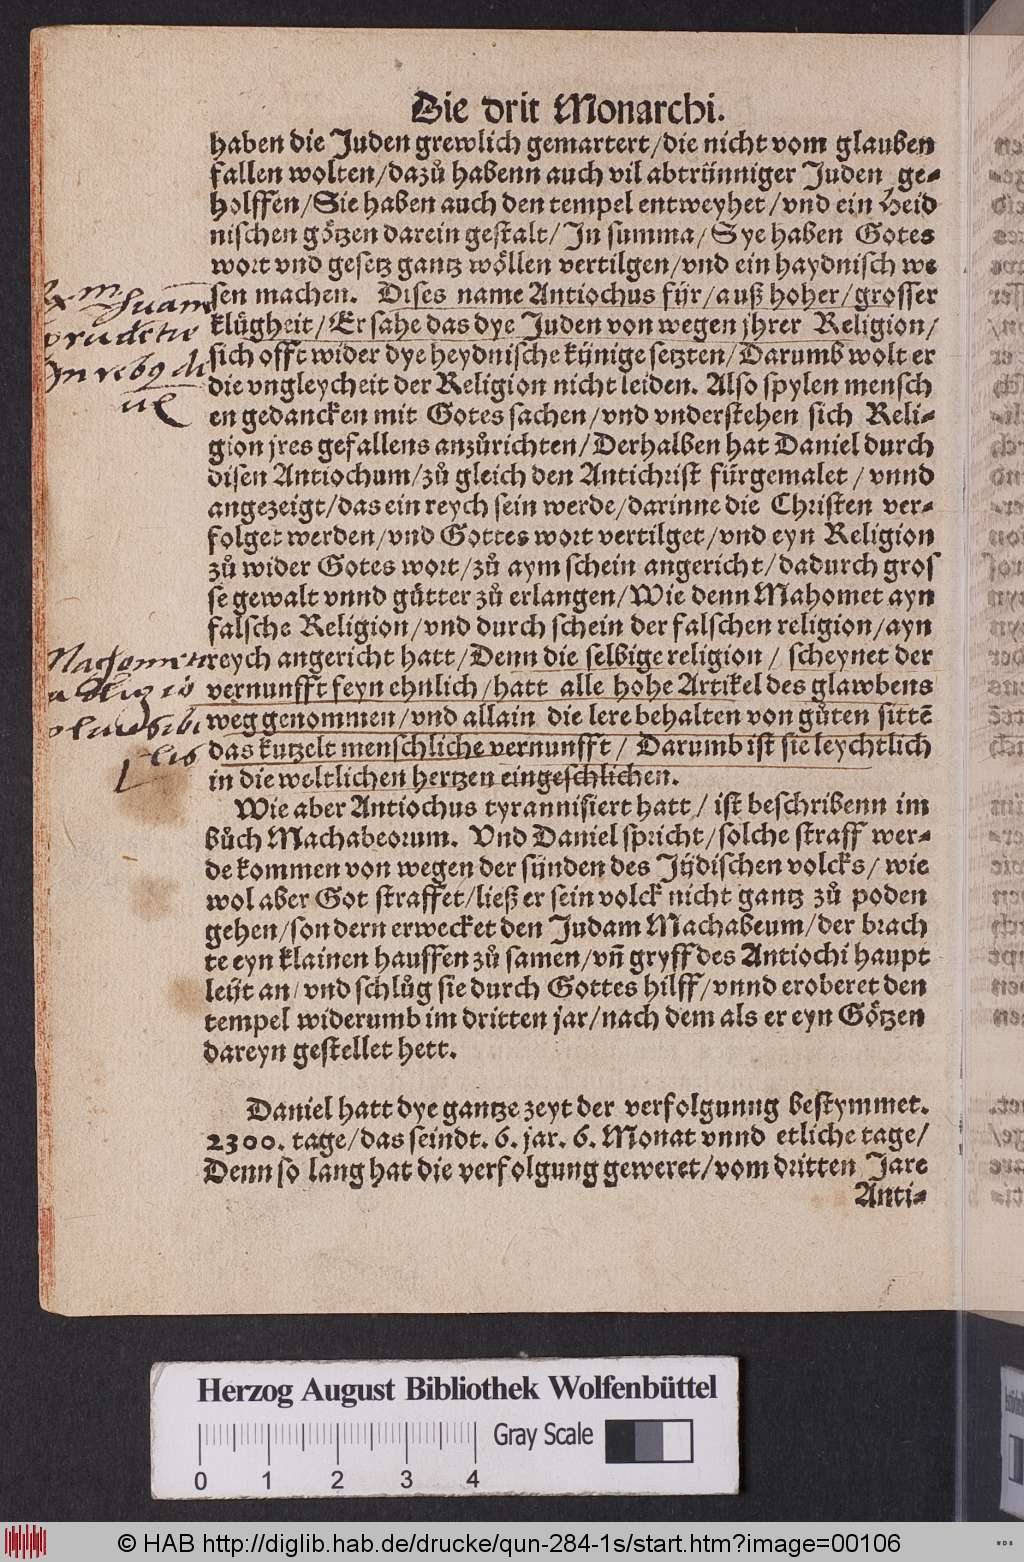 Die drit Monarchi.
haben die Juden grewlich gemartert/die nicht vom glauben
fallen wolten/dazů habenn auch vil abtrünniger Juden ge-
holffen/Sie haben auch den tempel entweyhet/vnd ein Heid
nischen götzen darein gestalt/In summa/Sye haben Gotes
wort vnd gesetz gantz wöllen vertilgen/vnd ein haydnisch we
sen machen. Dises name Antiochus für/auß hoher/grosser
klůgheit/Er sahe das dye Juden von wegen jhrer Religion/
sich offt wider dye heydnische künige setzten/Darumb wolt er
die vngleycheit der Religion nicht leiden. Also spylen mensch
en gedancken mit Gotes sachen/vnd vnderstehen sich Reli-
gion jres gefallens anzůrichten/Derhalben hat Daniel durch
disen Antiochum/zů gleich den Antichrist fürgemalet/vnnd
angezeigt/das ein reych sein werde/darinne die Christen ver-
folget werden/vnd Gottes wort vertilget/vnd eyn Religion
zů wider Gotes wort/zů aym schein angericht/dadurch gros
se gewalt vnnd gůtter zů erlangen/Wie denn Mahomet ayn
falsche Religion/vnd durch schein der falschen religion/ayn
reych angericht hatt/Denn die selbige religion/scheynet der
vernunfft feyn ehnlich/hatt alle hohe Artikel des glawbens
weg genommen/vnd allain die lere behalten von gůten sittē
das kutzelt menschliche vernunfft/Darumb ist sie leychtlich
in die weltlichen hertzen eingeschlichen.
Wie aber Antiochus tyrannisiert hatt/ist beschribenn im
bůch Machabeorum. Vnd Daniel spricht/solche straff wer-
de kommen von wegen der sünden des Jüdischen volcks/wie
wol aber Got straffet/ließ er sein volck nicht gantz zů poden
gehen/sondern erwecket den Judam Machabeum/der brach
te eyn klainen hauffen zů samen/vñ gryff des Antiochi haupt
leüt an/vnd schlůg sie durch Gottes hilff/vnnd eroberet den
tempel widerumb im dritten jar/nach dem als er eyn Götzen
dareyn gestellet hett.
Daniel hatt dye gantze zeyt der verfolgunng bestymmet.
2300. tage/das seindt. 6. jar. 6. Monat vnnd etliche tage/
Denn so lang hat die verfolgung geweret/vom dritten Jare
Anti-
prudetie
In rebus
Herzog August Bibliothek Wolfenbüttel
Gray Scale
0 1 2 3 4
© HAB http://diglib.hab.de/drucke/qun-284-1s/start.htm?image=00106